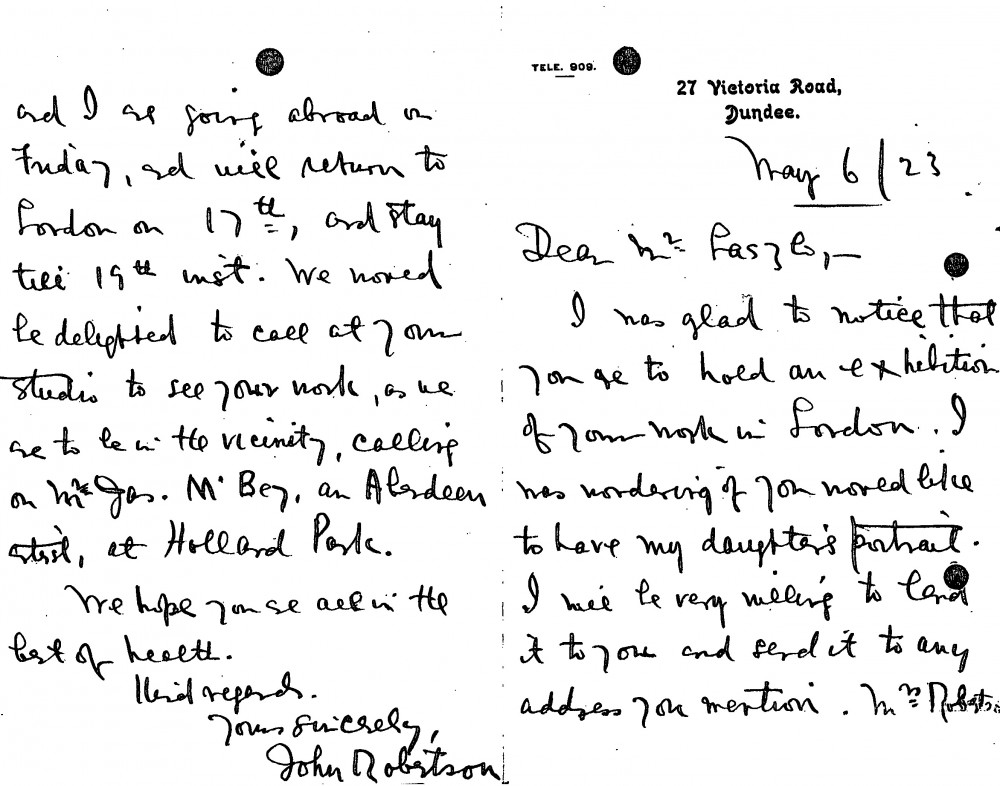 TELE. 909.
27 Victoria Road,
Dundee.
May 6/23.
Dear Mr Laszlo,—
I was glad to notice that
you are to hold an exhibition
of your work in London. I
was wondering if you would like
to have my daughter's portrait.
I will be very willing to lend
it to you and send it to any
address you mention. Mrs Robertson
and I are going abroad on
Friday, and will return to
London on 17th, and stay
till 19th inst. We would
be delighted to call at your
studio to see your work, as we
are to be in the vicinity, calling
on Mr Jas. McBey, an Aberdeen
artist, at Holland Park.
We hope you are all in the
best of health.
Kind regards.
Yours sincerely,
John Robertson